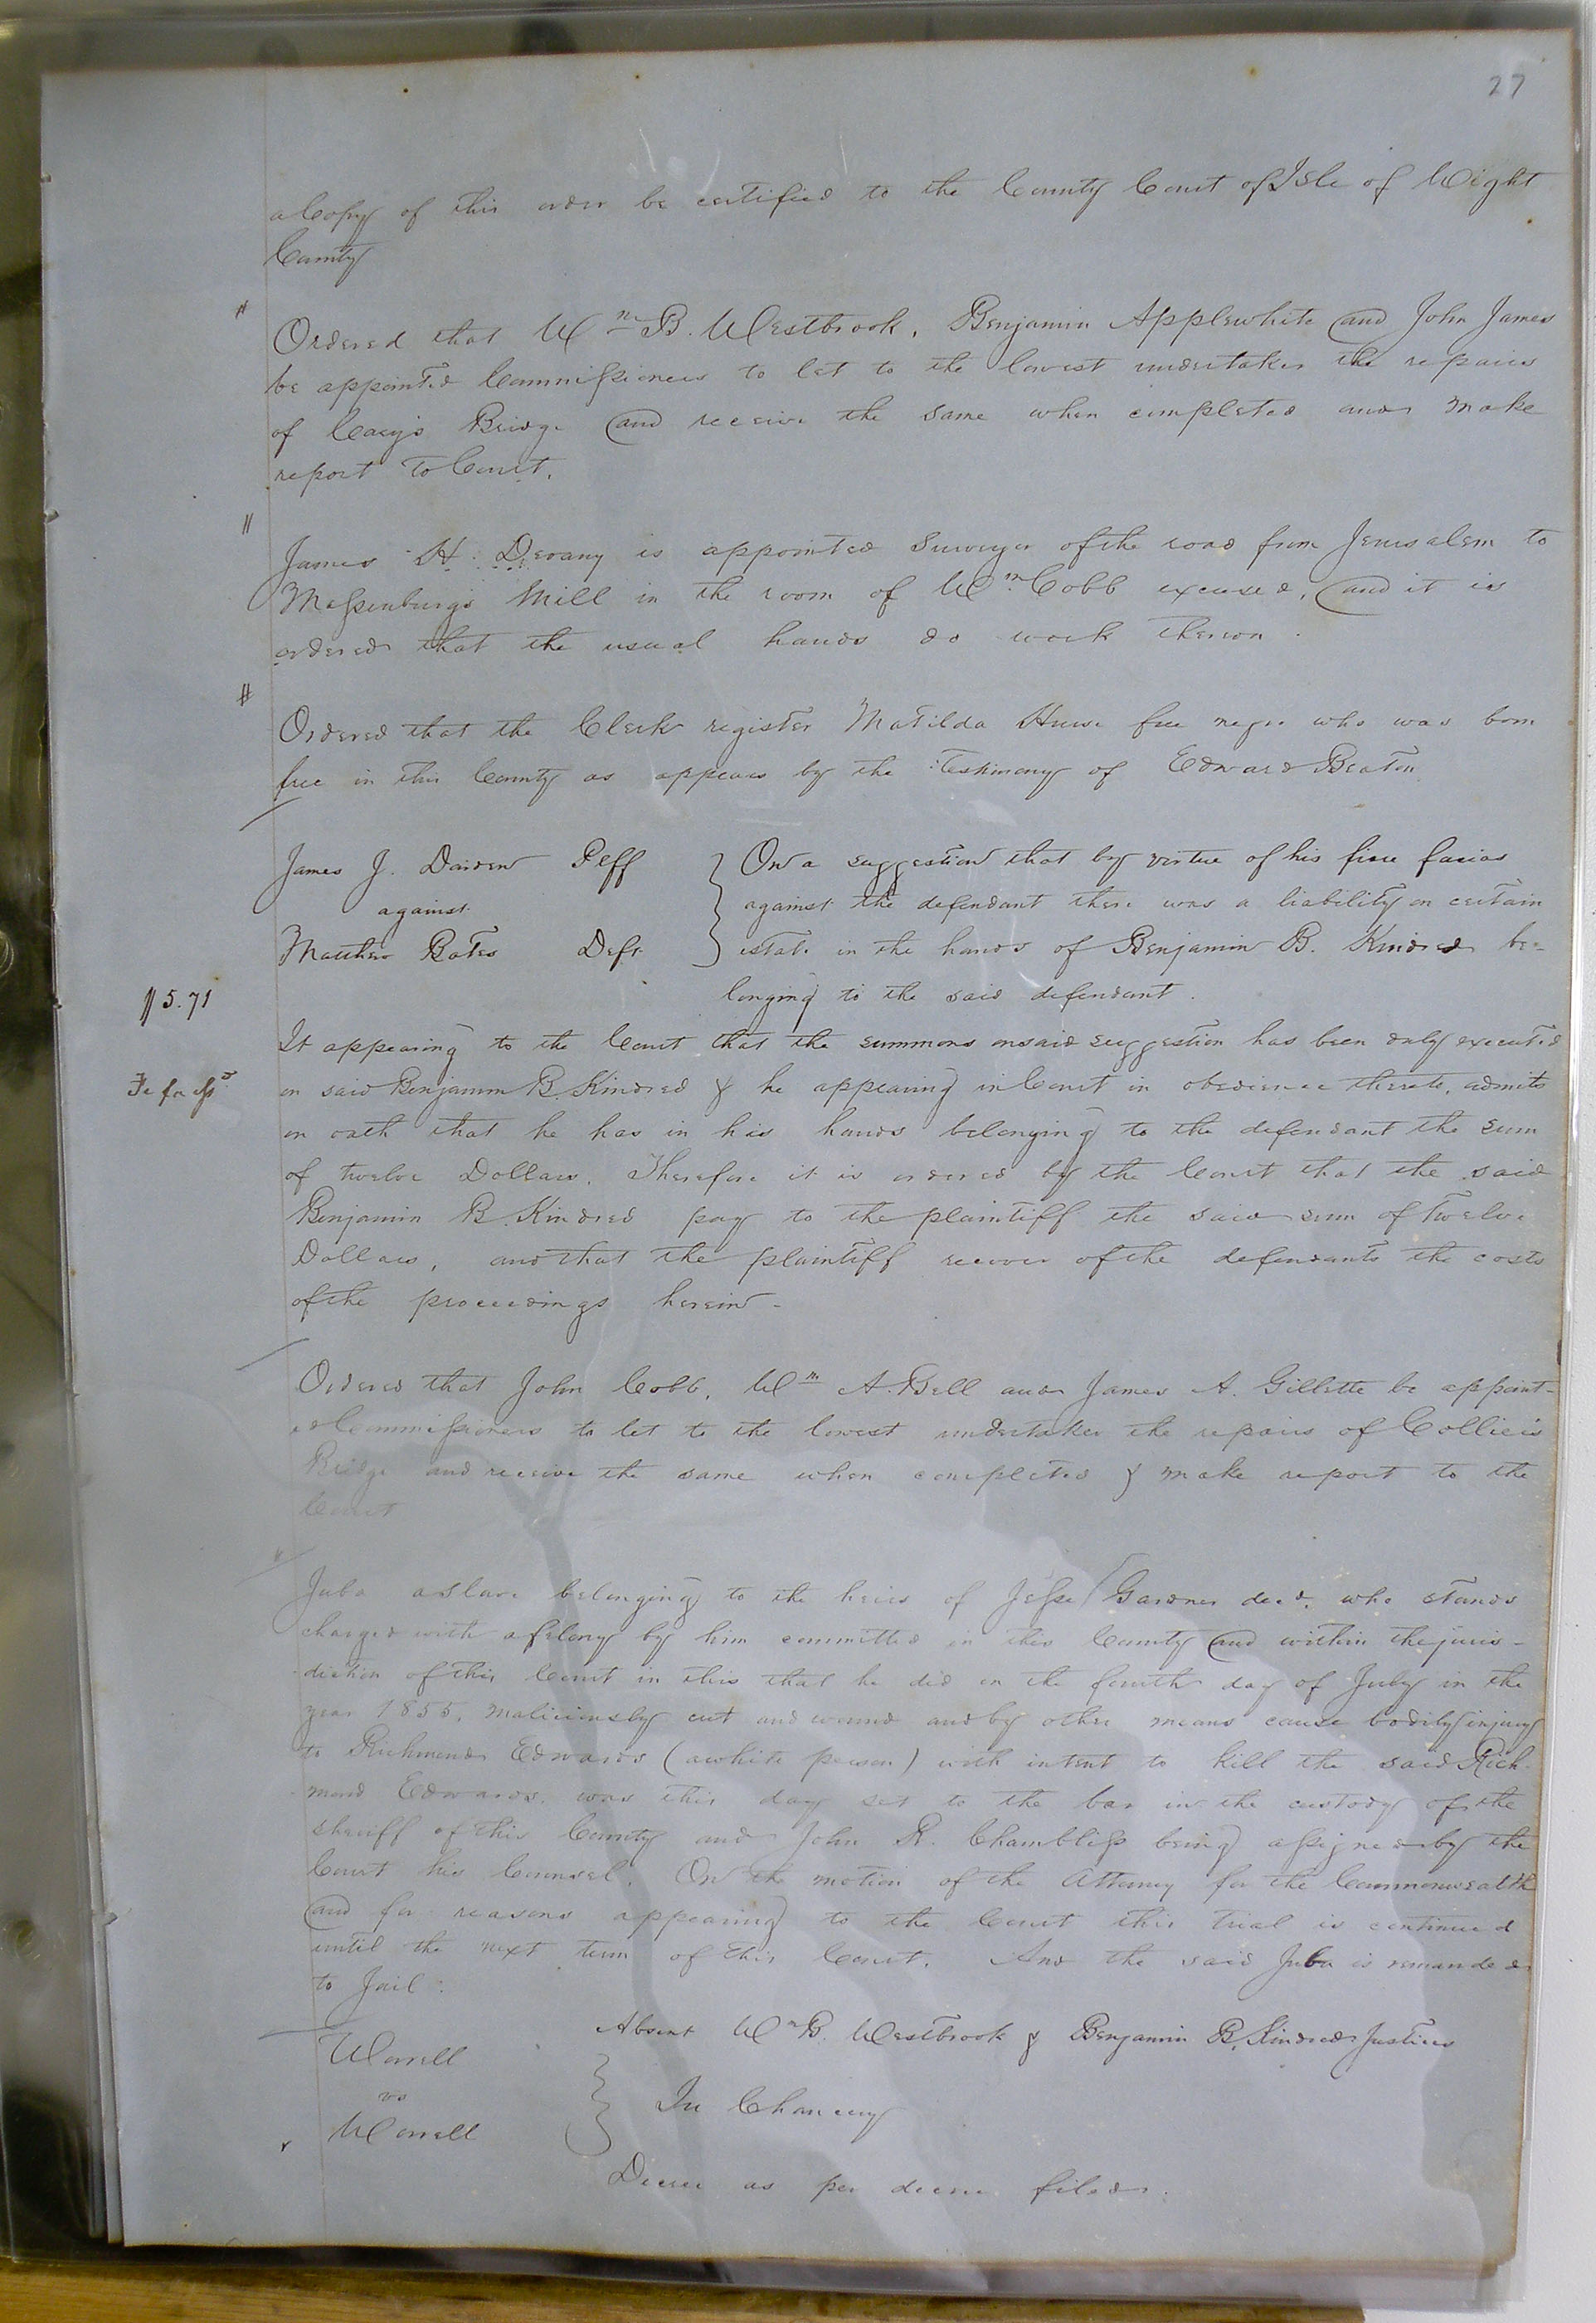 27
a Copy of this order be certified to the County Court of Isle of Wight
County
Ordered that Wm B. Westbrook, Benjamin Applewhite and John James
be appointed Commissioners to let to the lowest undertaker the repairs
of Cary's Bridge and receive the same when completed and make
report to Court.
James H. Devany is appointed Surveyor of the road from Jerusalem to
Massenburg's Mill in the room of Wm Cobb excused, and it is
ordered that the usual hands do work thereon.
Ordered that the Clerk register Matilda free negro who was born
free in this County as appears by the testimony of Edward Beaton
James J. Darden Plff } On a suggestion that by virtue of his fiere facias
against } against the defendant there was a liability on certain
Matthew Bates Deft } estate in the hands of Benjamin B. Kindred be-
$5.71 longing to the said defendant.
It appearing to the Court that the summons on said suggestion has been duly executed
Fe fa on said Benjamin B. Kindred & he appearing in Court in obedience thereto, admits
on oath that he has in his hands belonging to the defendant the sum
of twelve Dollars. Therefore it is ordered by the Court that the said
Benjamin B. Kindred pay to the plaintiff the said sum of Twelve
Dollars, and that the plaintiff recover of the defendants the costs
of the proceedings herein.
Ordered that John Cobb, Wm A. Bell and James A. Gillette be appoint-
ed Commissioners to let to the lowest undertaker the repairs of Collier's
Bridge and receive the same when completed & make report to the
Court
Juba a slave belonging to the heirs of Jesse Gardner decd. who stands
charged with a felony by him committed in this County and within the juris-
diction of this Court in this that he did on the fourth day of July in the
year 1855, maliciously cut and wound and by other means cause bodily injury
to Richmond Edwards (a white person) with intent to kill the said Rich-
mond Edwards, was this day set to the bar in the custody of the
sheriff of this County and John R. Chambliss being assigned by the
Court his Counsel. On the motion of the Attorney for the Commonwealth
and for reasons appearing to the Court this trial is continued
until the next term of this Court. And the said Juba is remanded
to Jail.
Absent Wm B. Westbrook & Benjamin B. Kindred Justices
Worrell
vs } In Chancery
Worrell
Decree as per decree filed.